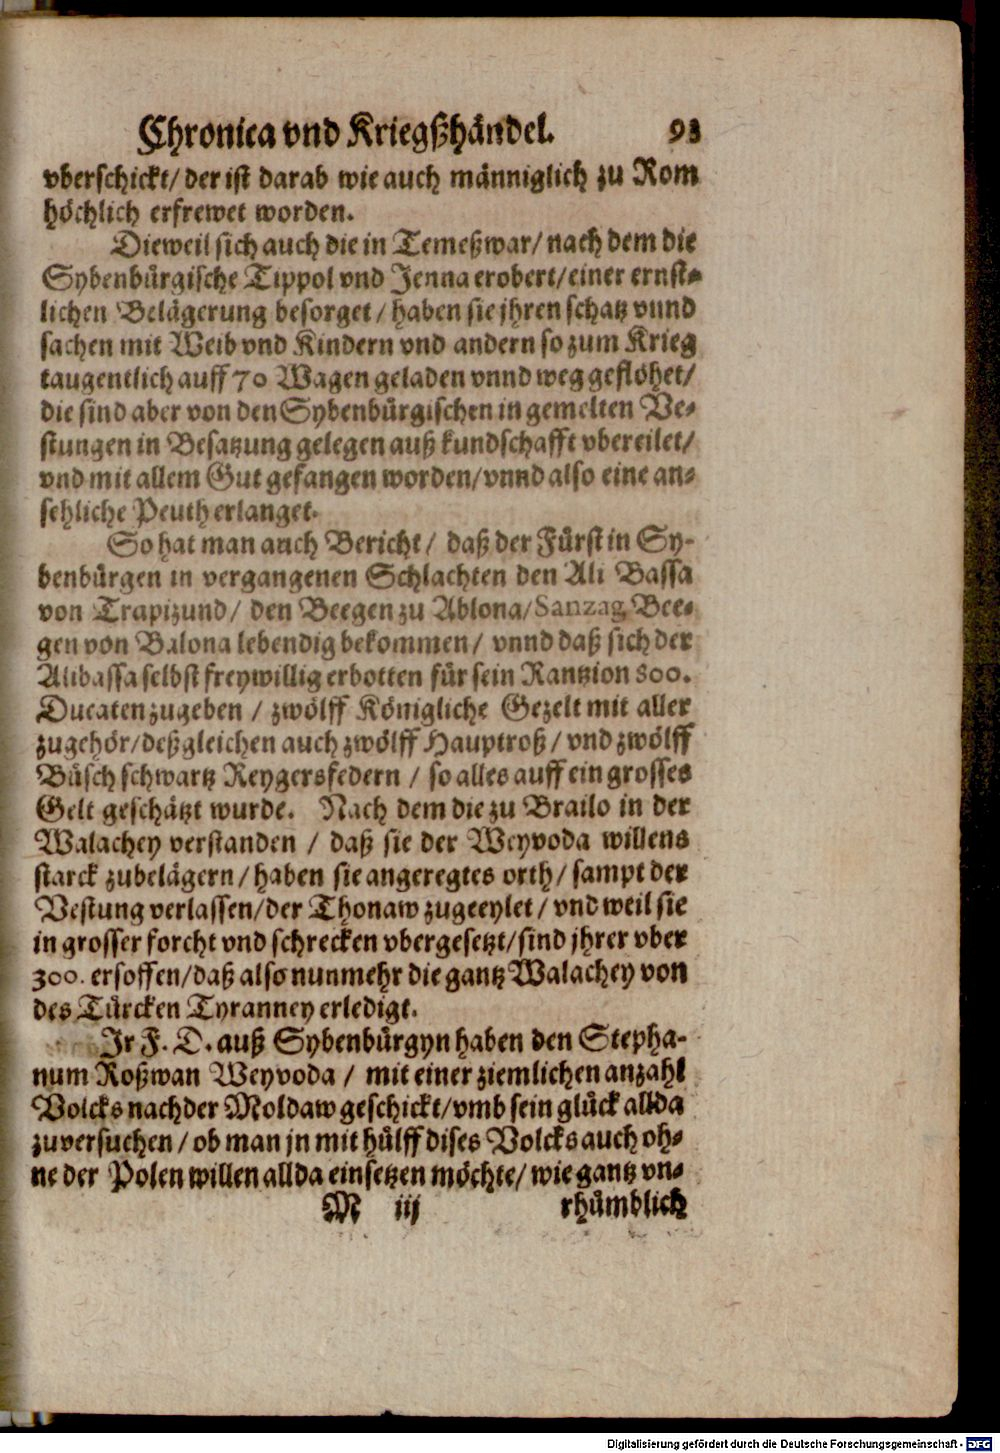 Chronica vnd Kriegßhändel. 93
vberschickt/ der ist darab wie auch männiglich zu Rom
höchlich erfrewet worden.
Dieweil sich auch die in Temeßwar/ nach dem die
Sybenbürgische Tippol vnd Jenna erobert/ einer ernst-
lichen Belägerung besorget/ haben sie jhren schatz vnnd
sachen mit Weib vnd Kindern vnd andern so zum Krieg
taugentlich auff 70 Wagen geladen vnnd weg geflöhet/
die sind aber von den Sybenbürgischen in gemelten Ve-
stungen in Besatzung gelegen auß kundschafft vbereilet/
vnd mit allem Gut gefangen worden/ vnnd also eine an-
sehliche Peuth erlanget.
So hat man auch Bericht/ daß der Fürst in Sy-
benbürgen in vergangenen Schlachten den Ali Bassa
von Trapizund/ den Beegen zu Ablona/ Sanzag Bee-
gen von Balona lebendig bekommen/ vnnd daß sich der
Alibassa selbst freywillig erbotten für sein Rantzion 800.
Ducaten zugeben / zwölff Königliche Gezelt mit aller
zugehör/ deßgleichen auch zwölff Hauptroß/ vnd zwölff
Büsch schwartz Reygersfedern / so alles auff ein grosses
Gelt geschätzt wurde. Nach dem die zu Brailo in der
Walachey verstanden / daß sie der Weyvoda willens
starck zubelägern/ haben sie angeregtes orth/ sampt der
Vestung verlassen/ der Thonaw zugeeylet/ vnd weil sie
in grosser forcht vnd schrecken vbergesetzt/ sind jhrer vber
300. ersoffen/ daß also nunmehr die gantz Walachey von
des Türcken Tyranney erledigt.
Ir F. D. auß Sybenbürgyn haben den Stepha-
num Roßwan Weyvoda / mit einer ziemlichen anzahl
Volcks nach der Moldaw geschickt/ vmb sein glück allda
zuversuchen/ ob man jn mit hülff dises Volcks auch oh-
ne der Polen willen allda einsetzen möchte/ wie gantz vn-
M iij rhümblich
Digitalisierung gefördert durch die Deutsche Forschungsgemeinschaft - DFG